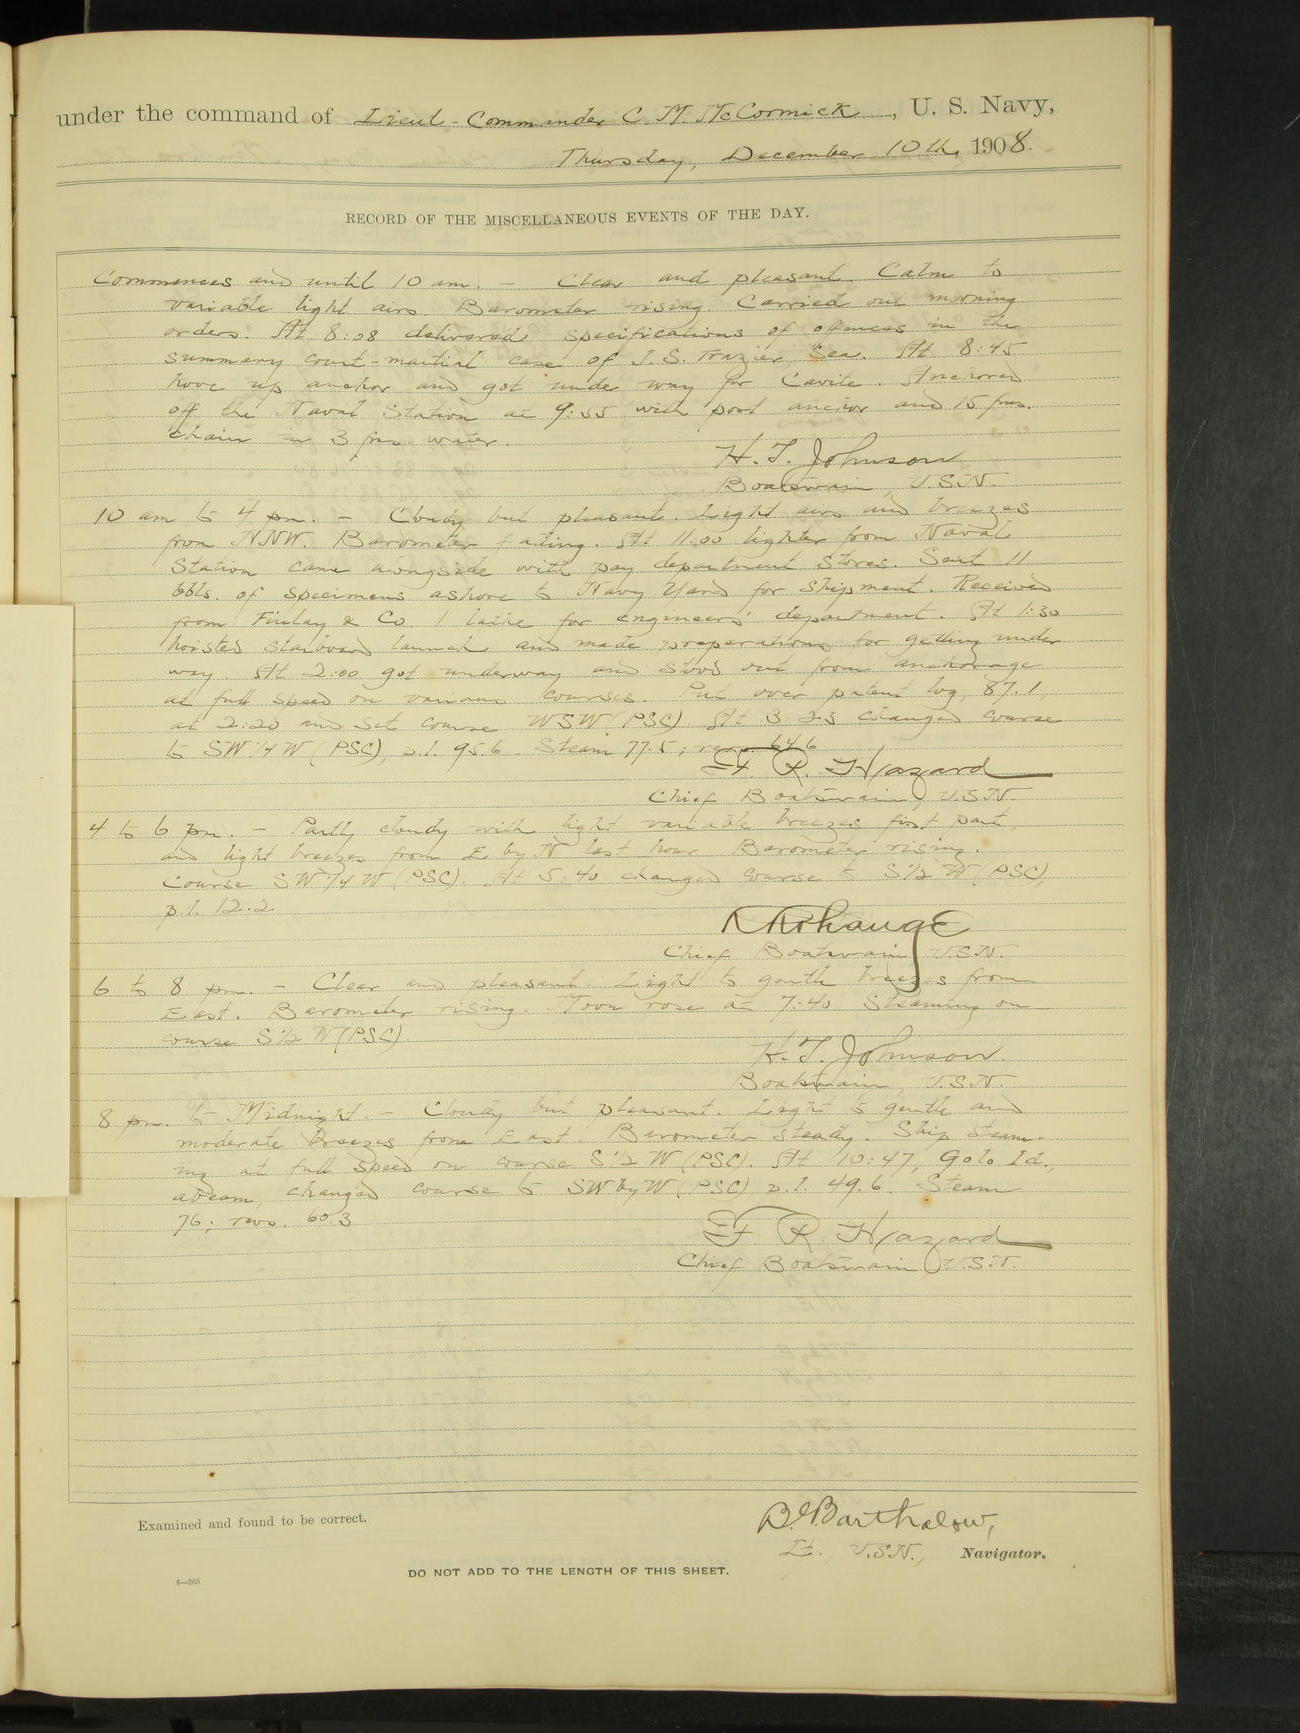 under the command of Lieut-Commander C. M. McCormick, U. S. Navy,
Thursday, December 10th, 1908.
RECORD OF THE MISCELLANEOUS EVENTS OF THE DAY.
Commences and until 10 am. - Clear and pleasant. Calm to
variable light airs. Barometer rising. Carried out morning
orders. At 8:08 delivered specifications of offences in the
summary court-martial case of J. S. Frazier, Sea. At 8:45
hove up anchor and got under way for Cavite. Anchored
off the Naval Station at 9:55 with port anchor and 15 fms.
chain in 3 fms. water.
H. T. Johnson
Boatswain, U.S.N.
10 am to 4 pm. - Cloudy but pleasant. Light airs and breezes
from NNW. Barometer falling. At 11:00 lighter from Naval
Station came alongside with pay department stores. Sent 11
bbls. of specimens ashore to Navy Yard for shipment. Received
from Findlay & Co. 1 lathe for engineers' department. At 1:30
hoisted starboard launch and made preparations for getting under
way. At 2:00 got underway and stood out from anchorage
at full speed on various courses. Put over patent log, 87.1,
at 2:20 and set course WSW (PSC). At 3:23 changed course
to SW 1/4 W (PSC), p.l. 95.6. Steam 77.5; revs. 64.6
F. R. Hazard
Chief Boatswain, U.S.N.
4 to 6 pm. - Partly cloudy with light variable breezes first part,
and light breezes from E by N last hour. Barometer rising.
Course SW 1/4 W (PSC). At 5:40 changed course to S 1/2 W (PSC),
p.l. 12.2
Chief Boatswain, U.S.N.
6 to 8 pm. - Clear and pleasant. Light to gentle breezes from
East. Barometer rising. Moon rose at 7:40 Steaming on
course S 1/2 W (PSC).
H. T. Johnson.
Boatswain, U.S.N.
8 pm. to Midnight. - Cloudy but pleasant. Light to gentle and
moderate breezes from East. Barometer steady. Ship steam-
ing at full speed on course S 1/2 W (PSC). At 10:47, Golo Id.,
abeam, changed course to SW by W (PSC) p.l. 49.6. Steam
76; revs. 60.3
F. R. Hazard
Chief Boatswain U.S.N.
Examined and found to be correct.
Barthalow,
Lt., U.S.N., Navigator.
DO NOT ADD TO THE LENGTH OF THIS SHEET.
4—265